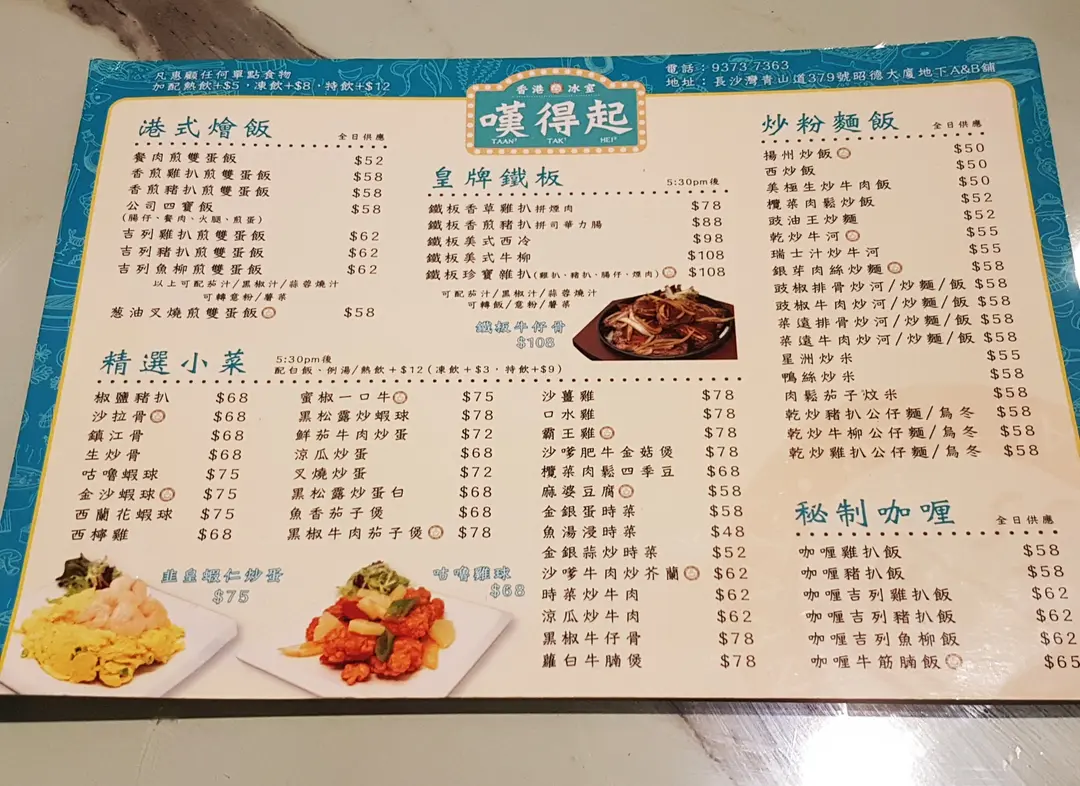 凡惠顧任何單點食物
加配熱飲+$5，凍飲+$8，特飲+$12
香港 冰室
嘆得起
TAAN³ TAK¹ HEI²
電話：9373 7363
地址：長沙灣青山道379號昭德大廈地下A&B舖
港式燴飯 全日供應
餐肉煎雙蛋飯 $52
香煎雞扒煎雙蛋飯 $58
香煎豬扒煎雙蛋飯 $58
公司四寶飯 $58
(腸仔、餐肉、火腿、煎蛋)
吉列雞扒煎雙蛋飯 $62
吉列豬扒煎雙蛋飯 $62
吉列魚柳煎雙蛋飯 $62
以上可配茄汁/黑椒汁/蒜蓉燒汁
可轉意粉/薯菜
葱油叉燒煎雙蛋飯 $58
皇牌鐵板 5:30pm後
鐵板香草雞扒拼煙肉 $78
鐵板香煎豬扒拼司華力腸 $88
鐵板美式西冷 $98
鐵板美式牛柳 $108
鐵板珍寶雜扒(雞扒、豬扒、腸仔、煙肉) $108
可配茄汁/黑椒汁/蒜蓉燒汁
可轉飯/意粉/薯菜
鐵板牛仔骨
$108
炒粉麵飯 全日供應
揚州炒飯 $50
西炒飯 $50
美極生炒牛肉飯 $50
欖菜肉鬆炒飯 $52
豉油王炒麵 $52
乾炒牛河 $55
瑞士汁炒牛河 $55
銀芽肉絲炒麵 $58
豉椒排骨炒河/炒麵/飯 $58
豉椒牛肉炒河/炒麵/飯 $58
菜遠排骨炒河/炒麵/飯 $58
菜遠牛肉炒河/炒麵/飯 $58
星洲炒米 $55
鴨絲炒米 $55
肉鬆茄子炆米 $58
乾炒豬扒公仔麵/烏冬 $58
乾炒牛柳公仔麵/烏冬 $58
乾炒雞扒公仔麵/烏冬 $58
精選小菜 5:30pm後
配白飯、例湯/熱飲+$12(凍飲+$3，特飲+$9)
椒鹽豬扒 $68
沙拉骨 $68
鎮江骨 $68
生炒骨 $68
咕嚕蝦球 $75
金沙蝦球 $75
西蘭花蝦球 $75
西檸雞 $68
蜜椒一口牛 $75
黑松露炒蝦球 $78
鮮茄牛肉炒蛋 $72
涼瓜炒蛋 $68
叉燒炒蛋 $72
黑松露炒蛋白 $68
魚香茄子煲 $68
黑椒牛肉茄子煲 $78
沙薑雞 $78
口水雞 $78
霸王雞 $78
沙嗲肥牛金菇煲 $78
欖菜肉鬆四季豆 $68
麻婆豆腐 $58
金銀蛋時菜 $58
魚湯浸時菜 $48
金銀蒜炒時菜 $52
沙嗲牛肉炒芥蘭 $62
時菜炒牛肉 $62
涼瓜炒牛肉 $62
黑椒牛仔骨 $78
蘿白牛腩煲 $78
韭皇蝦仁炒蛋
$75
咕嚕雞球
$68
秘制咖喱 全日供應
咖喱雞扒飯 $58
咖喱豬扒飯 $58
咖喱吉列雞扒飯 $62
咖喱吉列豬扒飯 $62
咖喱吉列魚柳飯 $62
咖喱牛筋腩飯 $65